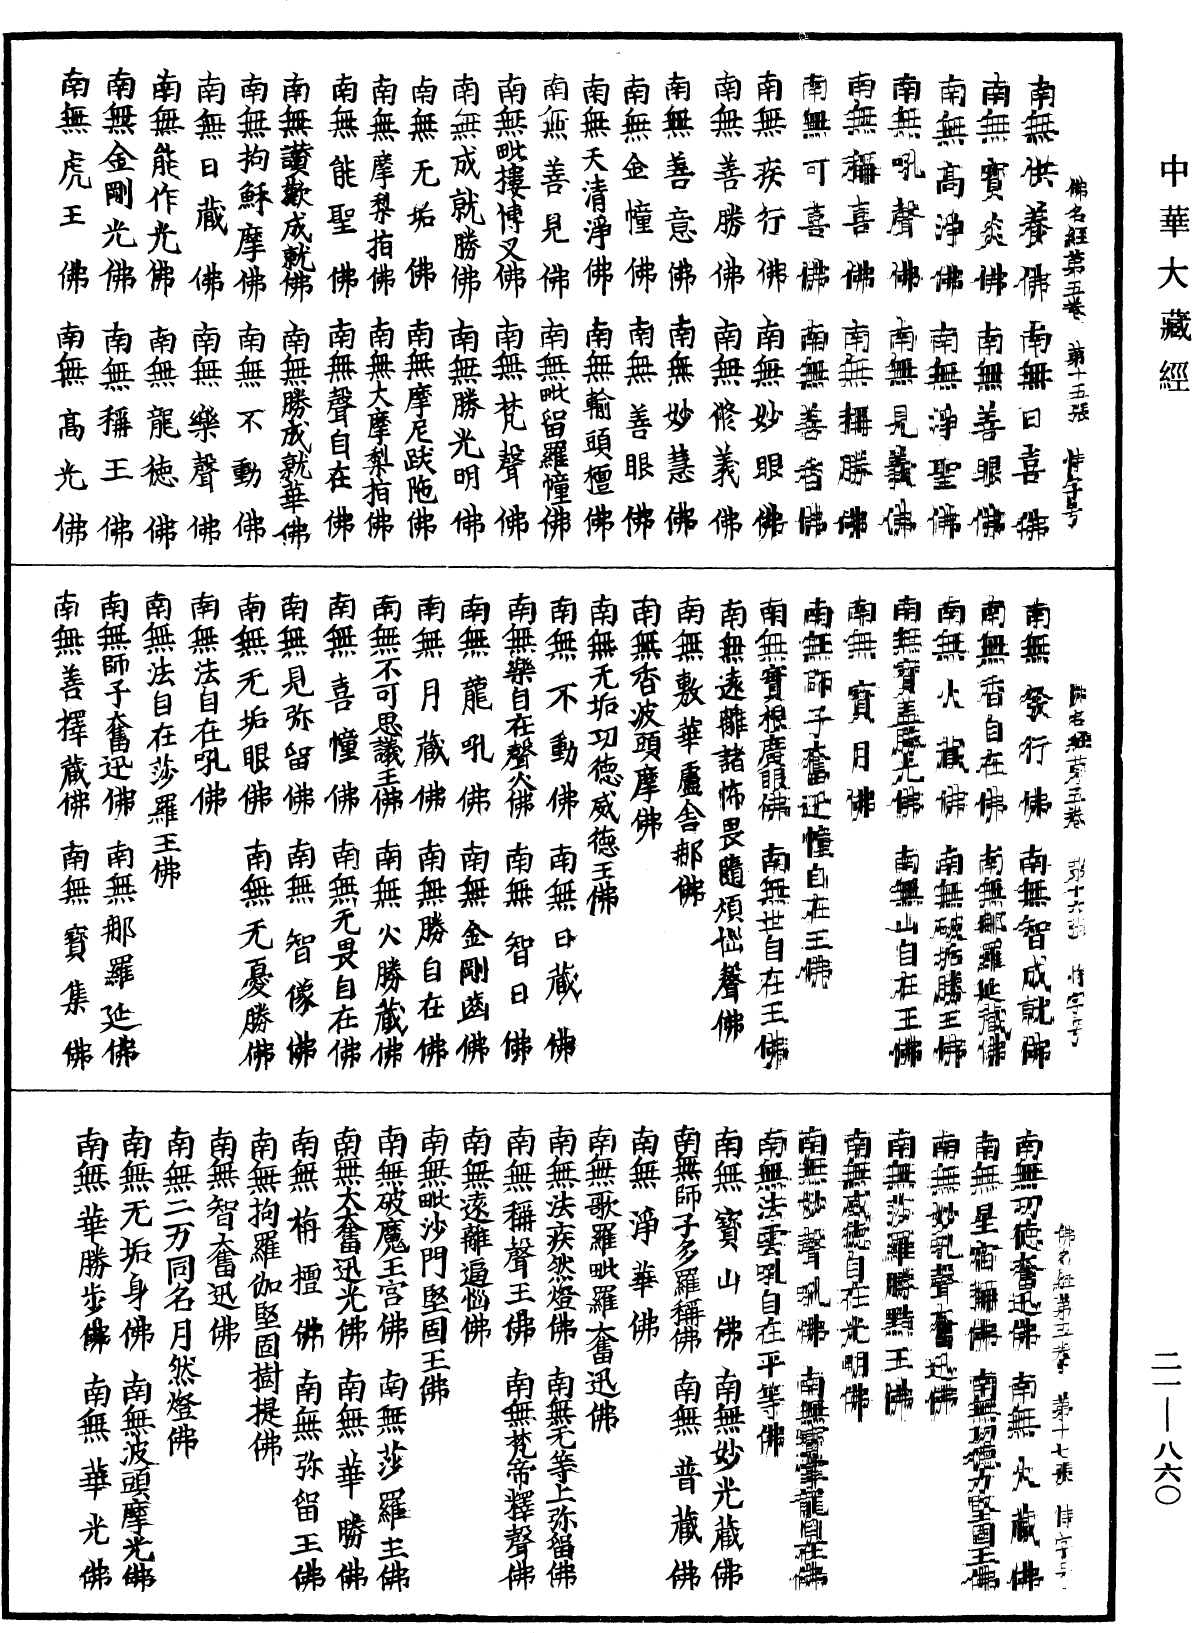 中華大藏經
佛名經第五卷 第十五張 恃字号
南無供養佛 南無日喜佛
南無寶炎佛 南無善眼佛
南無高淨佛 南無淨聖佛
南無吼聲佛 南無見義佛
南無稱喜佛 南無稱勝佛
南無可喜佛 南無善香佛
南無疾行佛 南無妙眼佛
南無善勝佛 南無修義佛
南無善意佛 南無妙慧佛
南無金幢佛 南無善眼佛
南無天清淨佛 南無輸頭檀佛
南無善見佛 南無毗留羅幢佛
南無毗摟博叉佛 南無梵聲佛
南無成就勝佛 南無勝光明佛
南無无垢佛 南無摩尼跋陁佛
南無摩梨指佛 南無大摩梨指佛
南無能聖佛 南無聲自在佛
南無讚歎成就佛 南無勝成就華佛
南無拘穌摩佛 南無不動佛
南無日藏佛 南無樂聲佛
南無能作光佛 南無龍徳佛
南無金剛光佛 南無稱王佛
南無虎王佛 南無高光佛
佛名經第五卷 第十六張 恃字号
南無發行佛 南無智成就佛
南無香自在佛 南無那羅延藏佛
南無火藏佛 南無破垢勝王佛
南無寶蓋勝光佛 南無山自在王佛
南無寶月佛
南無師子奮迅幢自在王佛
南無寶根廣眼佛 南無世自在王佛
南無遠離諸怖畏隨煩惱聲佛
南無敷華盧舍那佛
南無香波頭摩佛
南無无垢功徳威德王佛
南無不動佛 南無日藏佛
南無樂自在聲火佛 南無智日佛
南無龍吼佛 南無金剛齒佛
南無月藏佛 南無勝自在佛
南無不可思議王佛 南無火勝藏佛
南無喜幢佛 南無无畏自在佛
南無見弥留佛 南無智像佛
南無无垢眼佛 南無无憂勝佛
南無法自在吼佛
南無法自在莎羅王佛
南無師子奮迅佛 南無那羅延佛
南無善擇藏佛 南無寶集佛
佛名經第五卷 第十七張 恃字号
南無功德奮迅佛 南無火藏佛
南無星宿稱佛 南無功德力堅固王佛
南無妙吼聲奮迅佛
南無莎羅勝點王佛
南無威徳自在光明佛
南無妙聲吼佛 南無寶掌龍自在佛
南無法雲吼自在平等佛
南無寶山佛 南無妙光藏佛
南無師子多羅稱佛 南無普藏佛
南無淨華佛
南無歌羅毗羅奮迅佛
南無法疾然燈佛 南無无等上弥留佛
南無稱聲王佛 南無梵帝釋聲佛
南無遠離逼惱佛
南無毗沙門堅固王佛
南無破魔王宮佛 南無莎羅主佛
南無大奮迅光佛 南無華勝佛
南無栴檀佛 南無弥留王佛
南無拘羅伽堅固樹提佛
南無智奮迅佛
南無二万同名月然燈佛
南無无垢身佛 南無波頭摩光佛
南無華勝步佛 南無華光佛
二一—八六〇